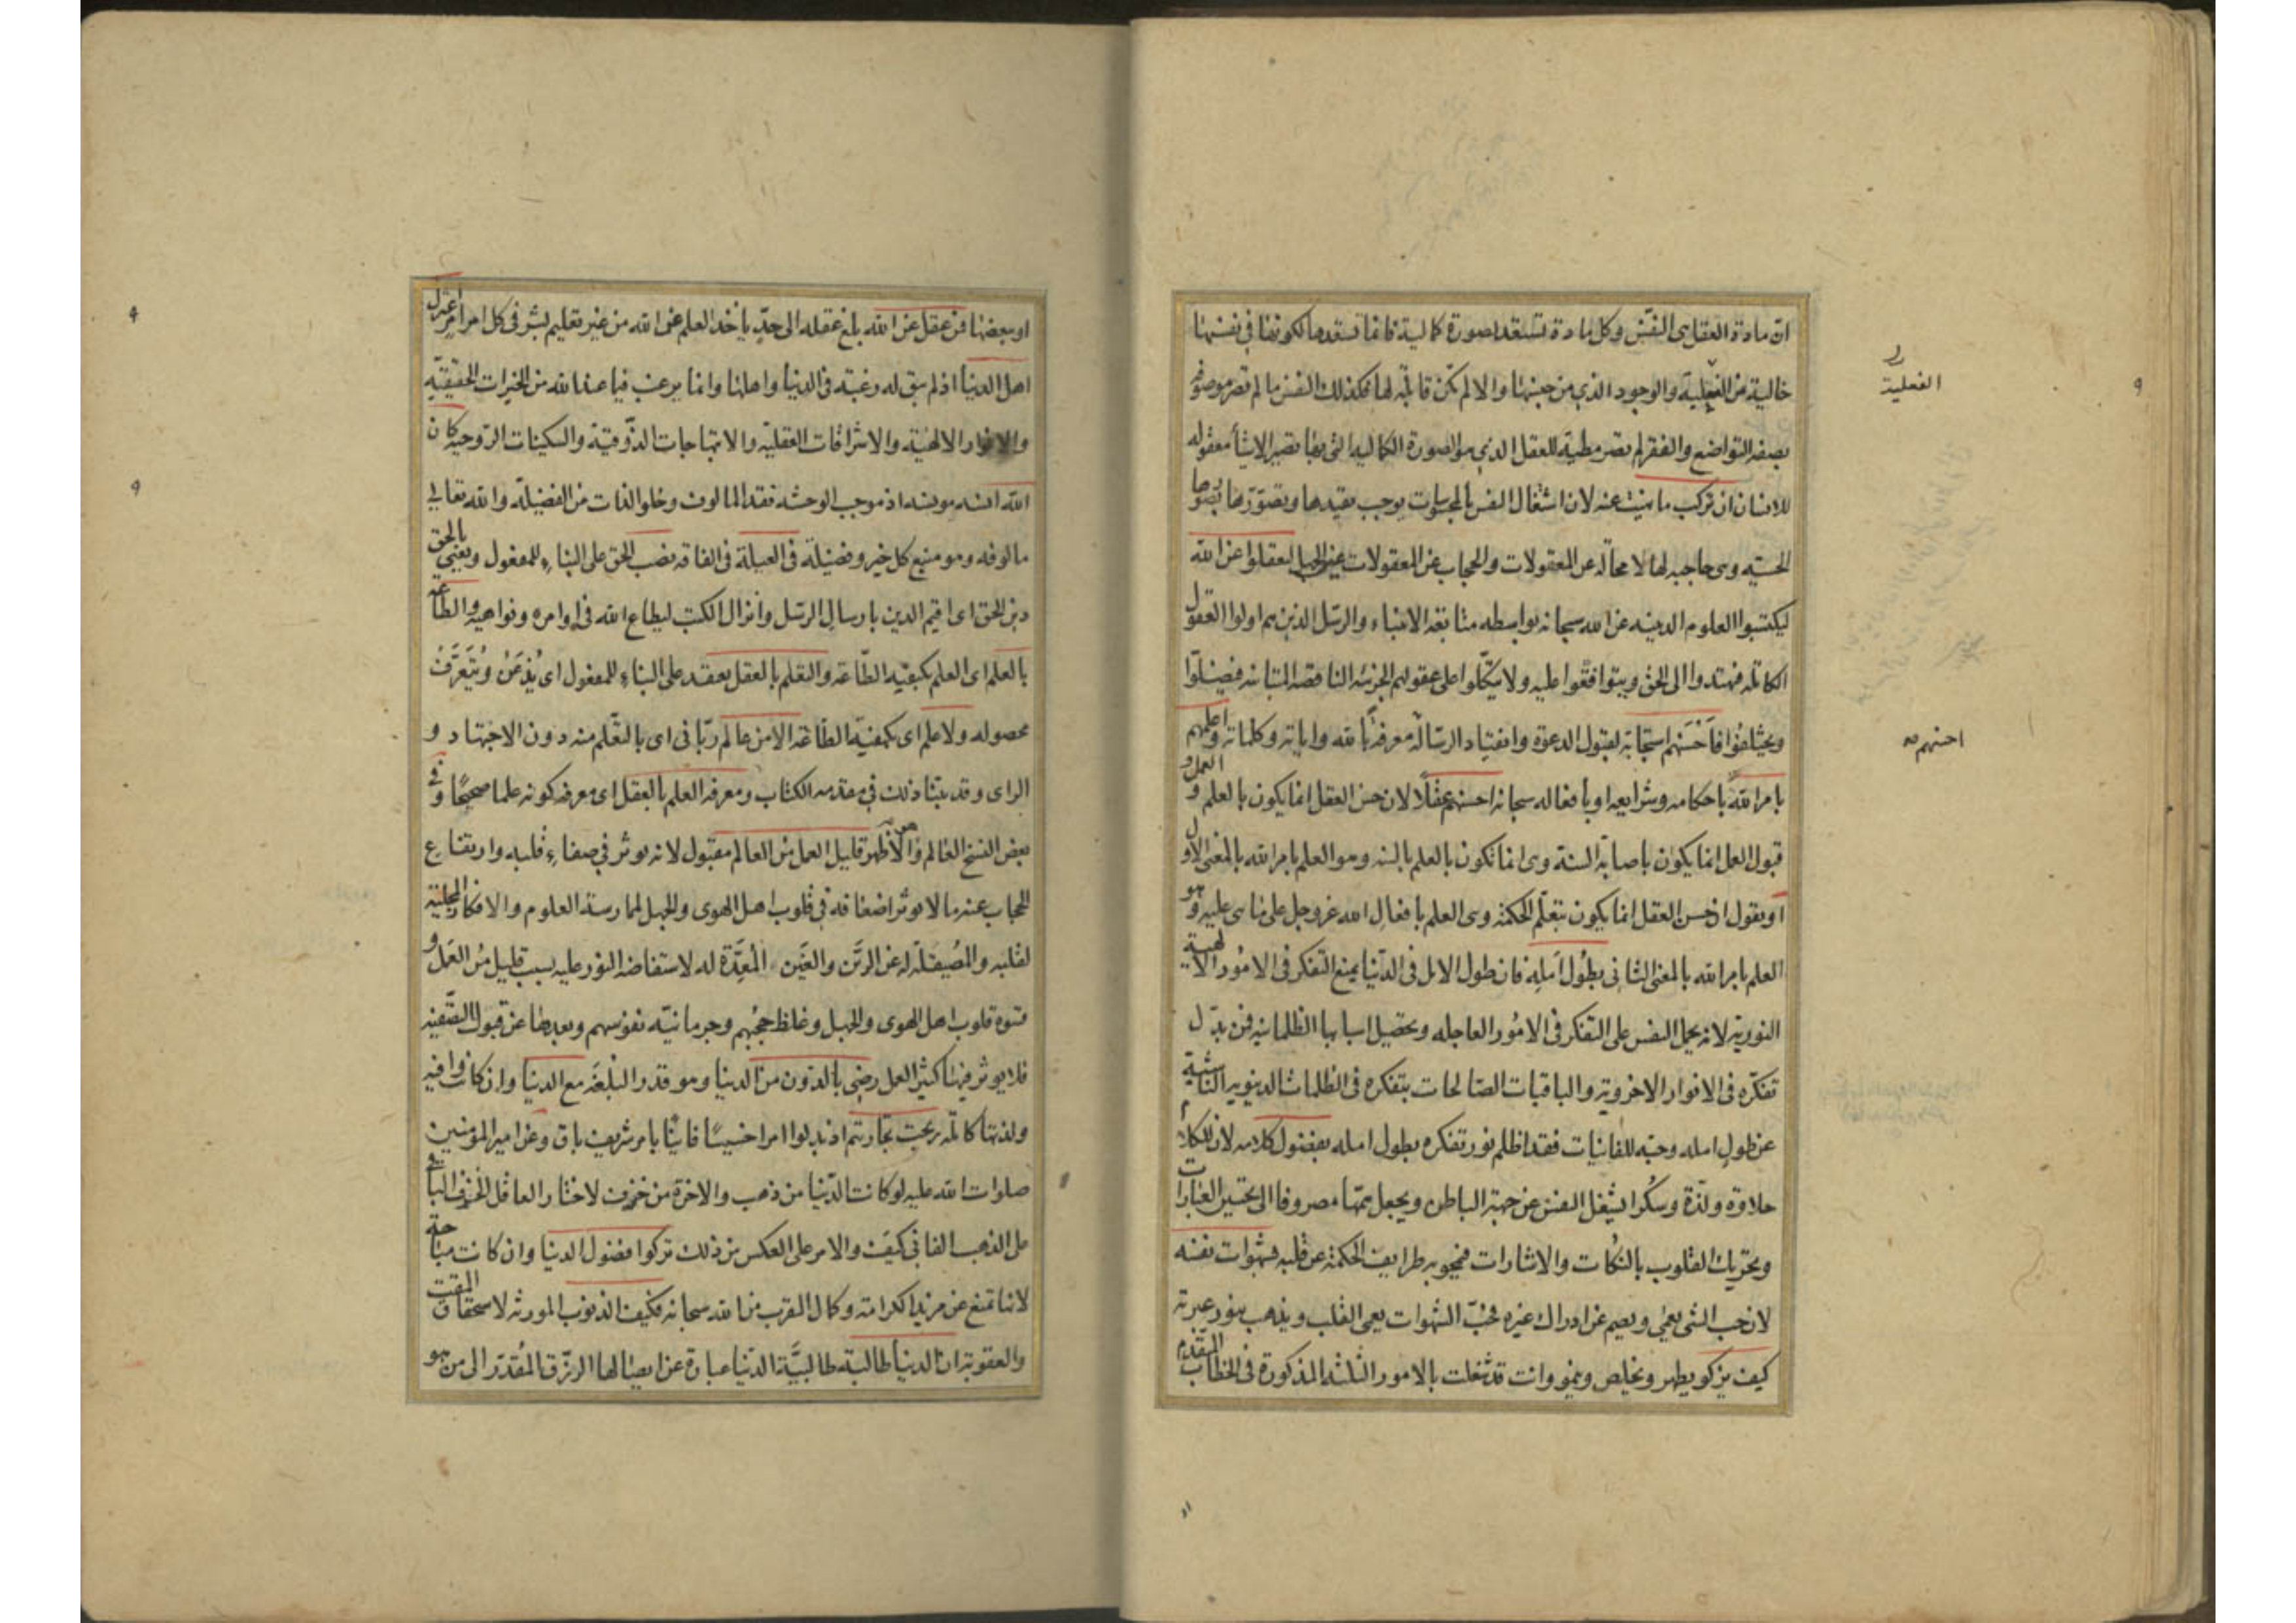 ان مادة العقل هى النفس وكل مادة تستعد لصورة كمالية فانما تستعدها لكونها فى نفسها
خالية عن الفعلية والوجود الذي من جنسها والا لم تكن قابلة لها فكذلك النفس ما لم تصر موصوفة
الفعلية
بصفة التواضع والفقر لم تصر مطية للعقل الذي هو الصورة الكمالية التى بها تصير الاشياء معقوله
للانسان ان تركب ما نهيت عنه لان اشتغال النفس بالمحسوسات يوجب تقيدها وتصورها بصورها
الحسيه وهى حاجبه لها لا محالة عن المعقولات والحجاب عن المعقولات عين الجهل ليعقلوا عن الله
ليكتسبوا العلوم الدينيه عن الله سبحانه بواسطه متابعة الانبياء والرسل الذين هم اولوا العقول
الكاملة فيهتدوا الى الحق ويتوافقوا عليه ولا يتكلوا على عقولهم الجزئيه الناقصه المتباينه فيضلوا
ويختلفوا فاحسنهم استجابة لقبول الدعوة وانقياد الرسالة معرفة بالله واياته وكلماته واعلمهم
احسنهم صه
بامر الله باحكامه وشرايعه او بافعاله سبحانه احسنهم عقلا لان حسن العقل انما يكون بالعلم والعمل و
قبول العمل انما يكون باصابة السنة وهى انما تكون بالعلم بالسنه وهو العلم بامر الله بالمعنى الاول
او يقول ان حسن العقل انما يكون بتعلم الحكمة وهى العلم بافعال الله عز وجل على ما هى عليه وهو
العلم بامر الله بالمعنى الثانى بطول امله فان طول الامل فى الدنيا يمنع التفكر فى الامور الالهية
النورية لانه يحمل النفس على التفكر فى الامور العاجله وتحصيل اسبابها الظلمانيه فمن بدل
تفكره فى الانوار الاخروية والباقيات الصالحات بتفكره فى الظلمات الدنيويه الناشئة
عن طول امله وحبه للفانيات فقد اظلم نور تفكره بطول امله بفضول كلامه لان للكلام
حلاوة ولذة وسكرا يشغل النفس عن جهة الباطن ويجعل همتها مصروفا الى تحسين العبارات
وتحريك القلوب بالنكات والاشارات فيمحو به طرايف الحكمة عن قلبه شهوات نفسه
لان حب الشى يعمي ويصم عن ادراك غيره فحب الشهوات يعمى القلب ويذهب بنور عبرته
كيف يزكو يطهر ويخلص وينمو وانت قد شغلت بالامور الثلثه المذكورة فى الخطاب المتقدم
او ببعضها فمن عقل عن الله بلغ عقله الى حد ياخذ العلم عن الله من غير تعليم بشر فى كل امر امر اعتزل
اهل الدنيا اذ لم يبق له رغبته فى الدنيا واهلها وانما يرغب فيما عند الله من الخيرات الحقيقيه
والانوار الالهية والاشراقات العقليه والابتهاجات الذوقية والسكينات الروحيه كان
الله انسه مونسه اذ موجب الوحشه فقد المالوف وخلو الذات من الفضيلة والله تعالى
مالوفه وهو منبع كل خير وفضيلة فى العيلة فى الفاقه نصب الحق على البناء للمفعول ويعنى بالحق
دين الحق اى اقيم الدين بارسال الرسل وانزال الكتب ليطاع الله فى اوامره ونواهيه والطاعه
بالعلم اى العلم بكيفيه الطاعة والتعلم بالعقل يعتقد على البناء للمفعول اى يذعن ويتعرف
محصوله ولا علم اى بكيفيه الطاعه الا من عالم ربانى اى بالتعلم منه دون الاجتهاد و
الراى وقد بينا ذلك فى مقدمه الكتاب ومعرفه العلم بالعقل اى معرفه كونه علما صحيحا وفى
بعض النسخ العالم وهو الاظهر قليل العمل من العالم مقبول لانه يوثر فى صفاء قلبه وارتفاع
الحجاب عنه ما لا يوثر اضعافه فى قلوب اهل الهوى والجهل لممارسة العلوم والافكار المجلية
لقلبه والمصيقلة له عن الرين والغين المعدة له لاستفاضه النور عليه بسبب قليل من العمل و
قسوه قلوب اهل الهوى والجهل وغلظ حجبهم وجرمانيه نفوسهم وبعدها عن قبول التصفيه
فلا يوثر فيها كثير العمل رضى بالدون من الدنيا وهو قدر البلغة مع الدنيا وان كانت وافيه
ولذتها كاملة ربحت تجارتهم اذ بدلوا امرا خسيسا فانيا بامر شريف باق وعن امير المؤمنين
صلوات الله عليه لو كانت الدنيا من ذهب والاخرة من خزف لاختار العاقل الخزف الباقى
على الذهب الفانى كيف والامر على العكس من ذلك تركوا فضول الدنيا وان كانت مباحة
لانها تمنع عن مزيد الكرامة وكمال القرب من الله سبحانه فكيف الذنوب المورثه لاستحقاق المقت
والعقوبة ان الدنيا طالبة طالبية الدنيا عبارة عن ايصالها الرزق المقدر الى من هو